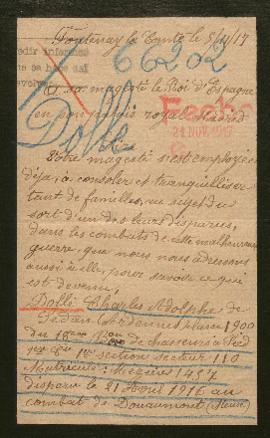 Fontenay le Comte le 5/11/17
66202
A sa majesté le Roi d'Espagne
en son palais royal Madrid
Fecha
21 NOV. 1917
Dollé
Votre magesté s'est employée
déja, a consoler et tranquilliser
tant de familles, au sujet du
sort d'un des leurs disparus,
dans les combats de cette malheureuse
guerre, que nous nous adressons
aussi à elle, pour savoir ce qui
est devenu,
Dollé Charles Adolphe de
Sedan (Ardennes) classe 1900
du 18eme Bon de chasseurs à Pied
1ere Cie 1ere section secteur 110
Matricule: Mézières 1457
disparu le 21 Aout 1916 au
combat de Douaumont (Meuse)